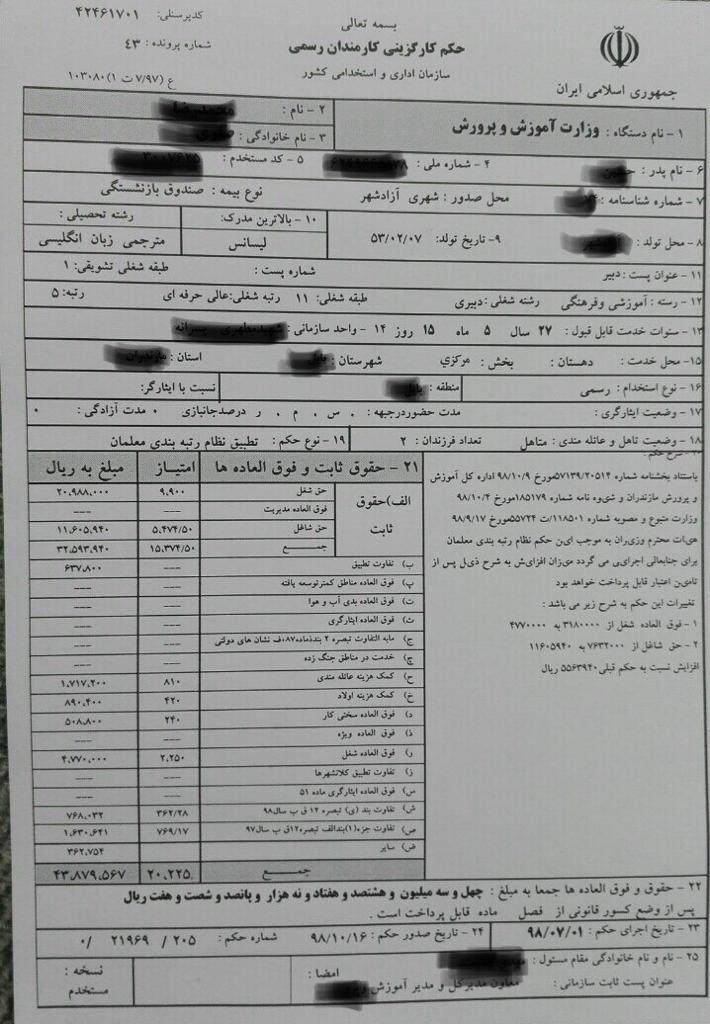 بسمه تعالی
حکم کارگزینی کارمندان رسمی
سازمان اداری و استخدامی کشور
جمهوری اسلامی ایران
کدپرسنلی: ۴۲۴۶۱۷۰۱
شماره پرونده : ۴۳
ع (۷/۹۷ ت ۱) ۱۰۳۰۸۰
۱- نام دستگاه : وزارت آموزش و پرورش
۲- نام :
۳- نام خانوادگی :
۴- شماره ملی :
۵- کد مستخدم :
۶- نام پدر :
۷- شماره شناسنامه :
محل صدور : شهری آزادشهر
نوع بیمه : صندوق بازنشستگی
۸- محل تولد :
۹- تاریخ تولد: ۵۳/۰۲/۰۷
۱۰- بالاترین مدرک:
لیسانس
رشته تحصیلی :
مترجمی زبان انگلیسی
۱۱- عنوان پست : دبیر
شماره پست :
طبقه شغلی تشویقی: ۱
۱۲- رسته : آموزشی وفرهنگی رشته شغلی: دبیری طبقه شغلی: ۱۱ رتبه شغلی:عالی حرفه ای رتبه: ۵
۱۳- سنوات خدمت قابل قبول : ۲۷ سال ۵ ماه ۱۵ روز ۱۴- واحد سازمانی :
۱۵- محل خدمت : دهستان : بخش : مرکزي شهرستان : استان :
۱۶- نوع استخدام : رسمی
منطقه :
نسبت با ایثارگر:
۱۷- وضعیت ایثارگری : مدت حضوردرجبهه : . س . م . ر درصدجانبازی ۰ مدت آزادگی : ۰
۱۸- وضعیت تاهل و عائله مندی : متاهل تعداد فرزندان : ۲
۱۹- نوع حکم : تطبیق نظام رتبه بندی معلمان
شرح حکم :
باستناد بخشنامه شماره ۵۷۱۳۹/۲۰۵۱۴مورخ ۹۸/۱۰/۹ اداره کل آموزش
و پرورش مازندران و شیوه نامه شماره ۱۸۵۱۷۹مورخ ۹۸/۱۰/۴
وزارت متبوع و مصوبه شماره ۱۱۸۵۰۱/ت ۵۵۷۲۴مورخ ۹۸/۹/۱۷
هیات محترم وزیران به موجب این حکم نظام رتبه بندی معلمان
برای جنابعالی اجرایی می گردد میزان افزایش به شرح ذیل پس از
تامین اعتبار قابل پرداخت خواهد بود
تغییرات این حکم به شرح زیر می باشد :
۱- فوق العاده شغل از ۳۱۸۰۰۰۰ به ۴۷۷۰۰۰۰
۲- حق شاغل از ۷۶۳۲۰۰۰ به ۱۱۶۰۵۹۴۰
افزایش نسبت به حکم قبلی۵۵۶۳۹۴۰ ریال
۲۱- حقوق ثابت و فوق العاده ها امتیاز مبلغ به ریال
الف)حقوق ثابت
حق شغل ۹,۹۰۰ ۲۰,۹۸۸,۰۰۰
فوق العاده مدیریت --- ---
حق شاغل ۵,۴۷۴/۵۰ ۱۱,۶۰۵,۹۴۰
جمـــــع ۱۵,۳۷۴/۵۰ ۳۲,۵۹۳,۹۴۰
ب) تفاوت تطبیق --- ۶۳۷,۸۰۰
پ) فوق العاده مناطق کمترتوسعه یافته --- ---
ت) فوق العاده بدی آب و هوا --- ---
ث) فوق العاده ایثارگری --- ---
ج) مابه التفاوت تبصره ۲ بندماده۸۷،ف نشان های دولتی --- ---
چ) خدمت در مناطق جنگ زده --- ---
ح) کمک هزینه عائله مندی ۸۱۰ ۱,۷۱۷,۲۰۰
خ) کمک هزینه اولاد ۴۲۰ ۸۹۰,۴۰۰
د) فوق العاده سختی کار ۲۴۰ ۵۰۸,۸۰۰
ذ) فوق العاده ویژه --- ---
ر) فوق العاده شغل ۲,۲۵۰ ۴,۷۷۰,۰۰۰
ز) تفاوت تطبیق کلانشهرها --- ---
س) فوق العاده ایثارگری ماده ۵۱ --- ---
ش) تفاوت بند (ی) تبصره ۱۲ ق ب سال۹۸ ۳۶۲/۲۸ ۷۶۸,۰۳۲
ص) تفاوت جزء(۱)بندالف تبصره۱۲ق ب سال۹۷ ۷۶۹/۱۷ ۱,۶۳۰,۶۴۱
ض) سایر ۳۶۲,۷۵۴
جمـــــع ۲۰,۲۲۵. ۴۳,۸۷۹,۵۶۷
۲۲- حقوق و فوق العاده ها جمعا به مبلغ : چهل و سه میلیون و هشتصد و هفتاد و نه هزار و پانصد و شصت و هفت ریال
پس از وضع کسور قانونی از فصل ماده قابل پرداخت است .
۲۳- تاریخ اجرای حکم : ۹۸/۰۷/۰۱
۲۴- تاریخ صدور حکم : ۹۸/۱۰/۱۶ شماره حکم : ۲۰۵ / ۲۱۹۶۹ /۰
۲۵- نام و نام خانوادگی مقام مسئول :
عنوان پست ثابت سازمانی : معاون مدیرکل و مدیر آموزش
امضا :
نسخه :
مستخدم